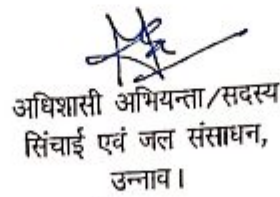 अधिशासी अभियन्ता/सदस्य
सिंचाई एवं जल संसाधन,
उन्नाव।